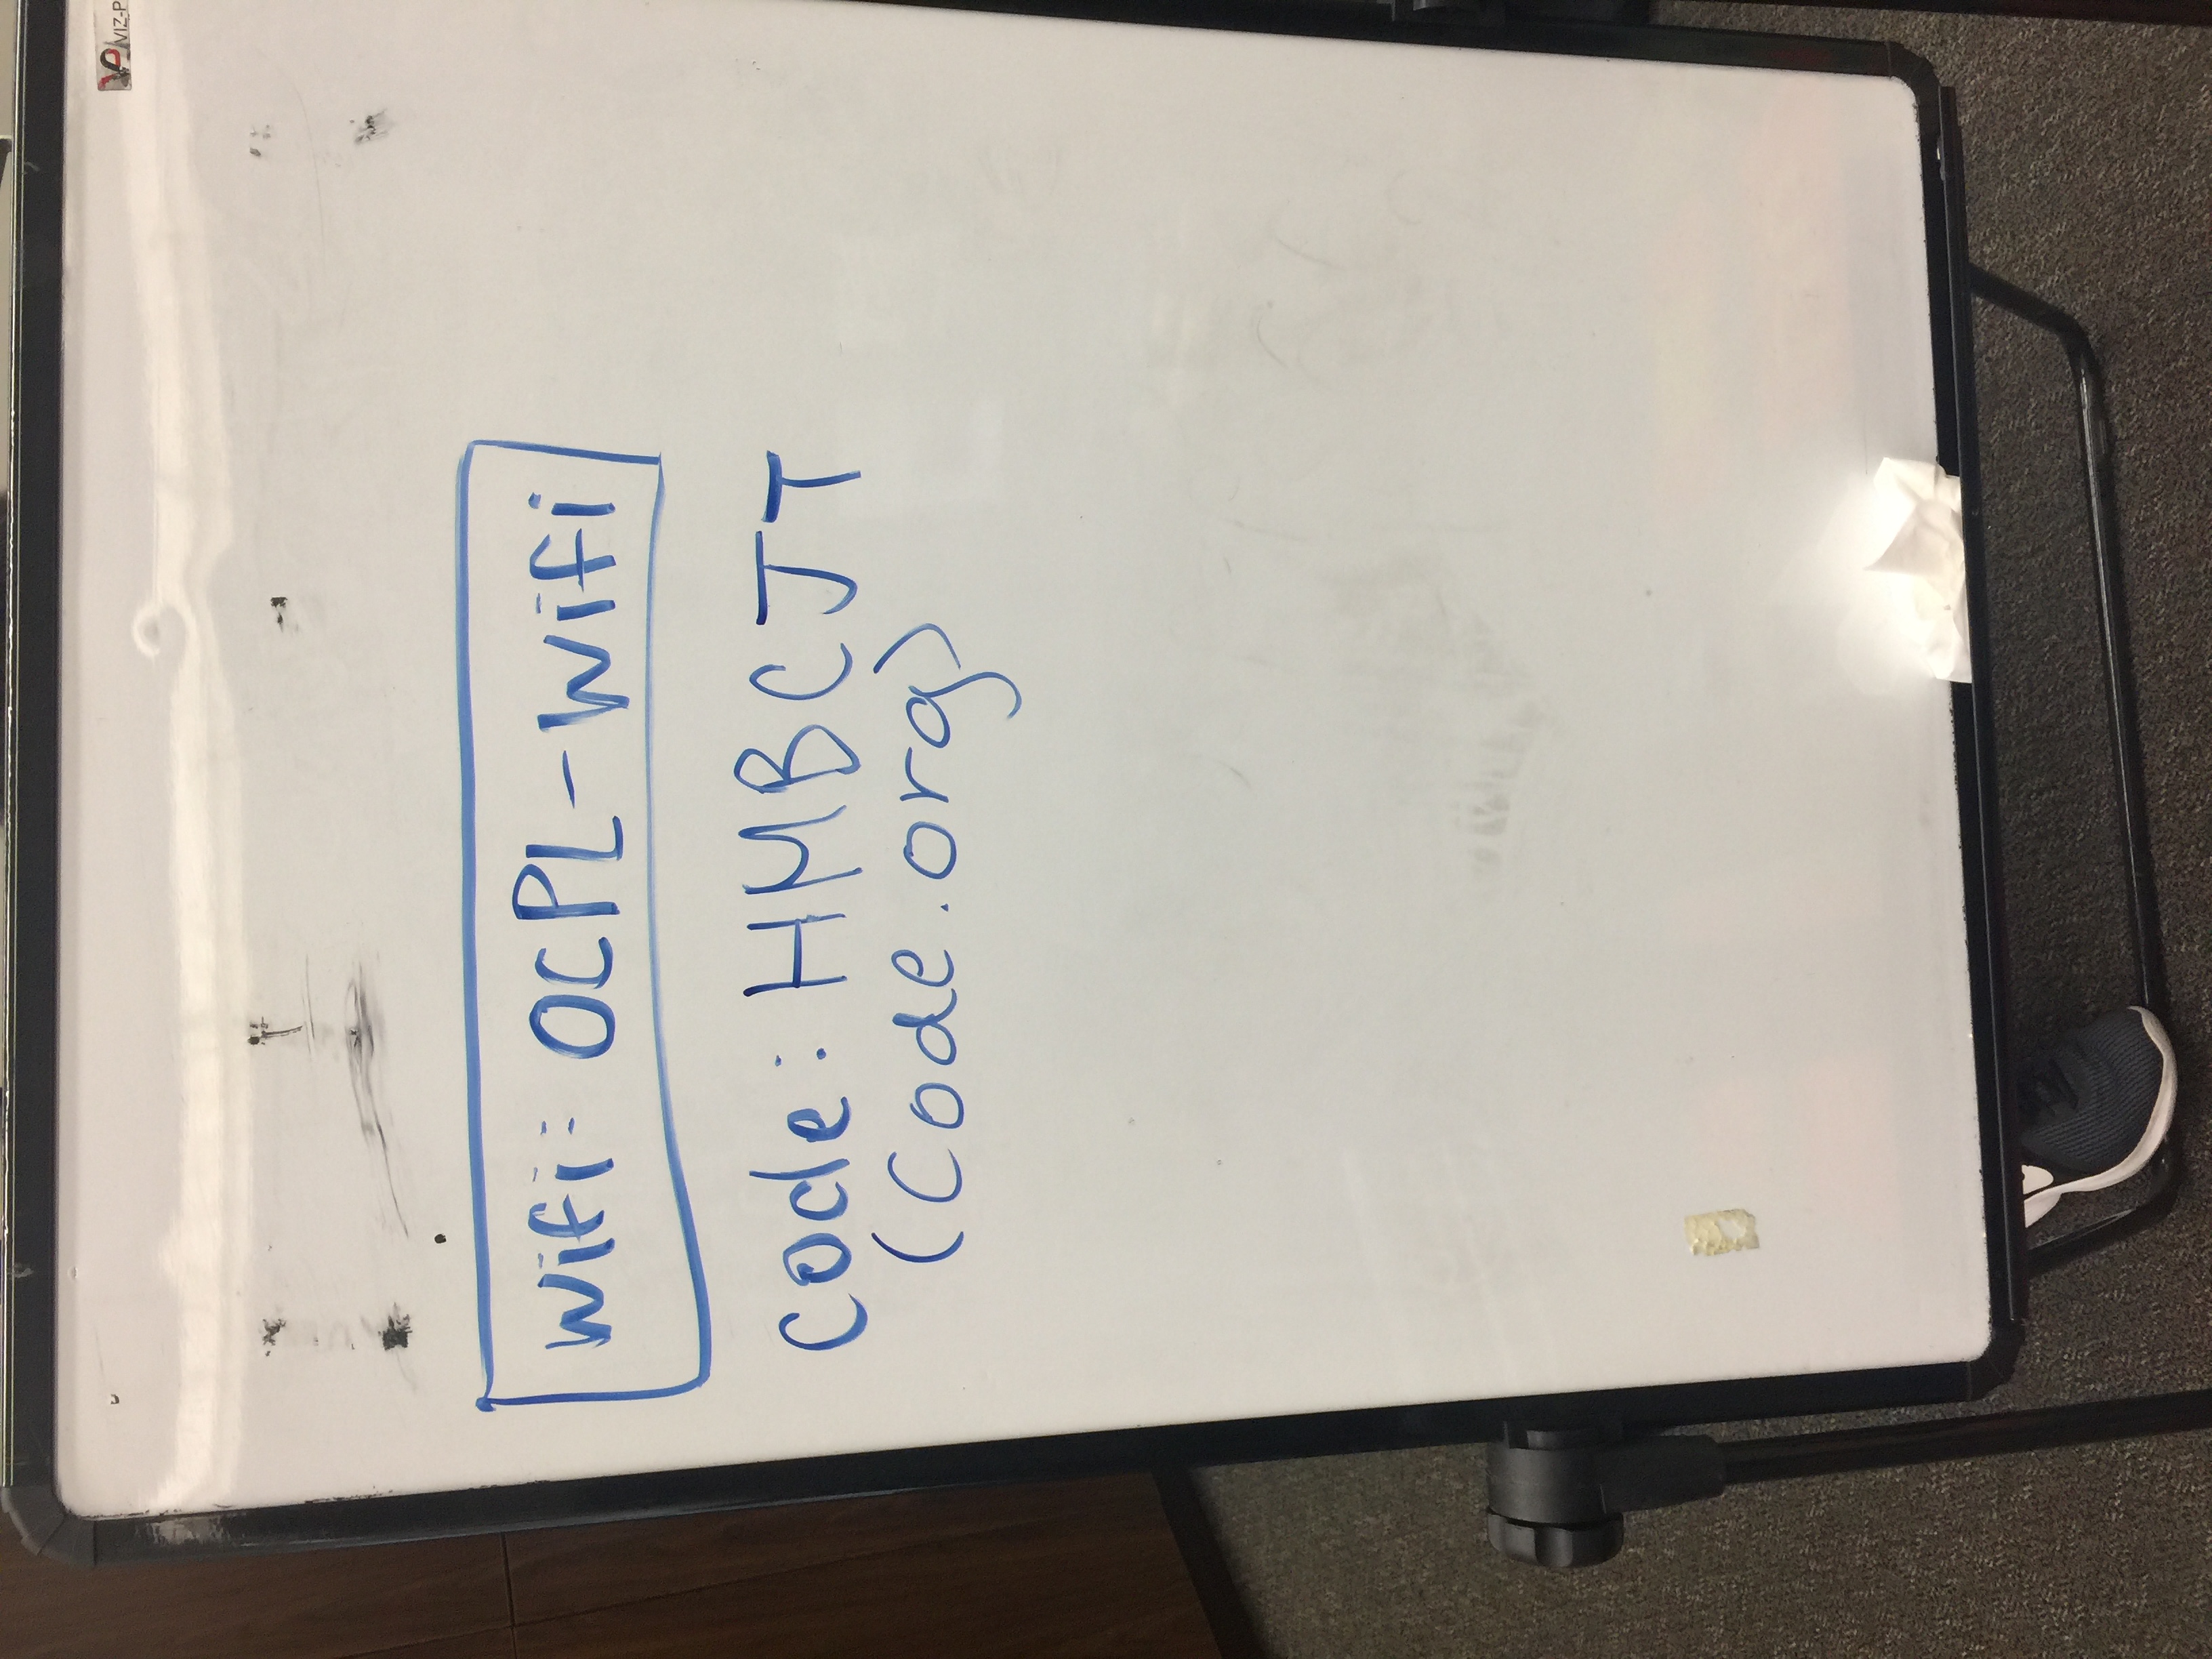 VIZ-P
Wifi: OCPL-Wifi
code: HMBCJT
(Code.org)